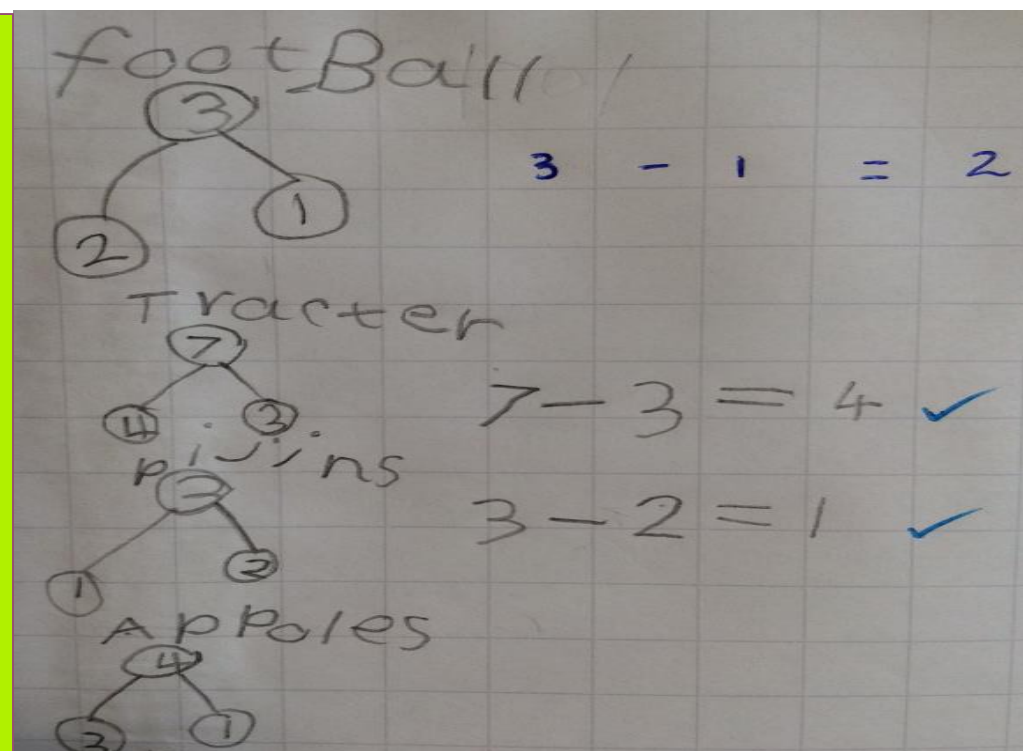 footBall
3
3 - 1 = 2
2 1
Tracter
7
4 3
7 - 3 = 4 ✓
pijjins
3
3 - 2 = 1 ✓
1 2
APPoles
4
3 1